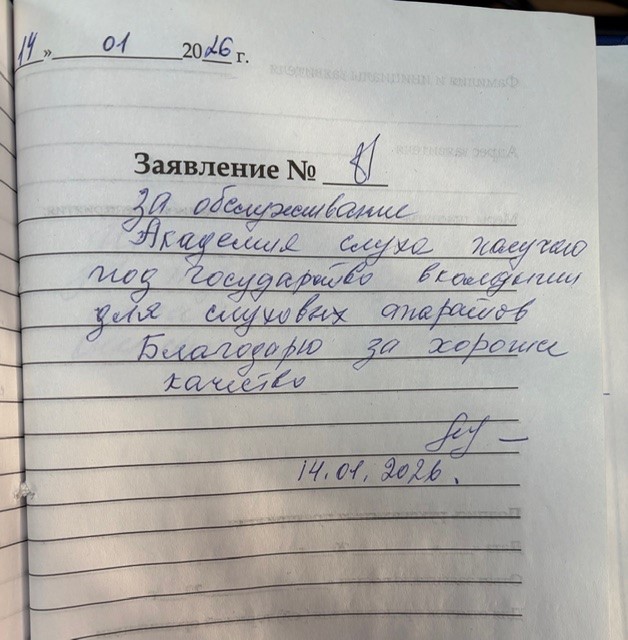 14 » 01 2026 г.
Заявление № 8
За обслуживание
Академия слуха получаю
под государство вкалдыши
для слуховых апаратов
Благодарю за хорошие
качество
14.01.2026.